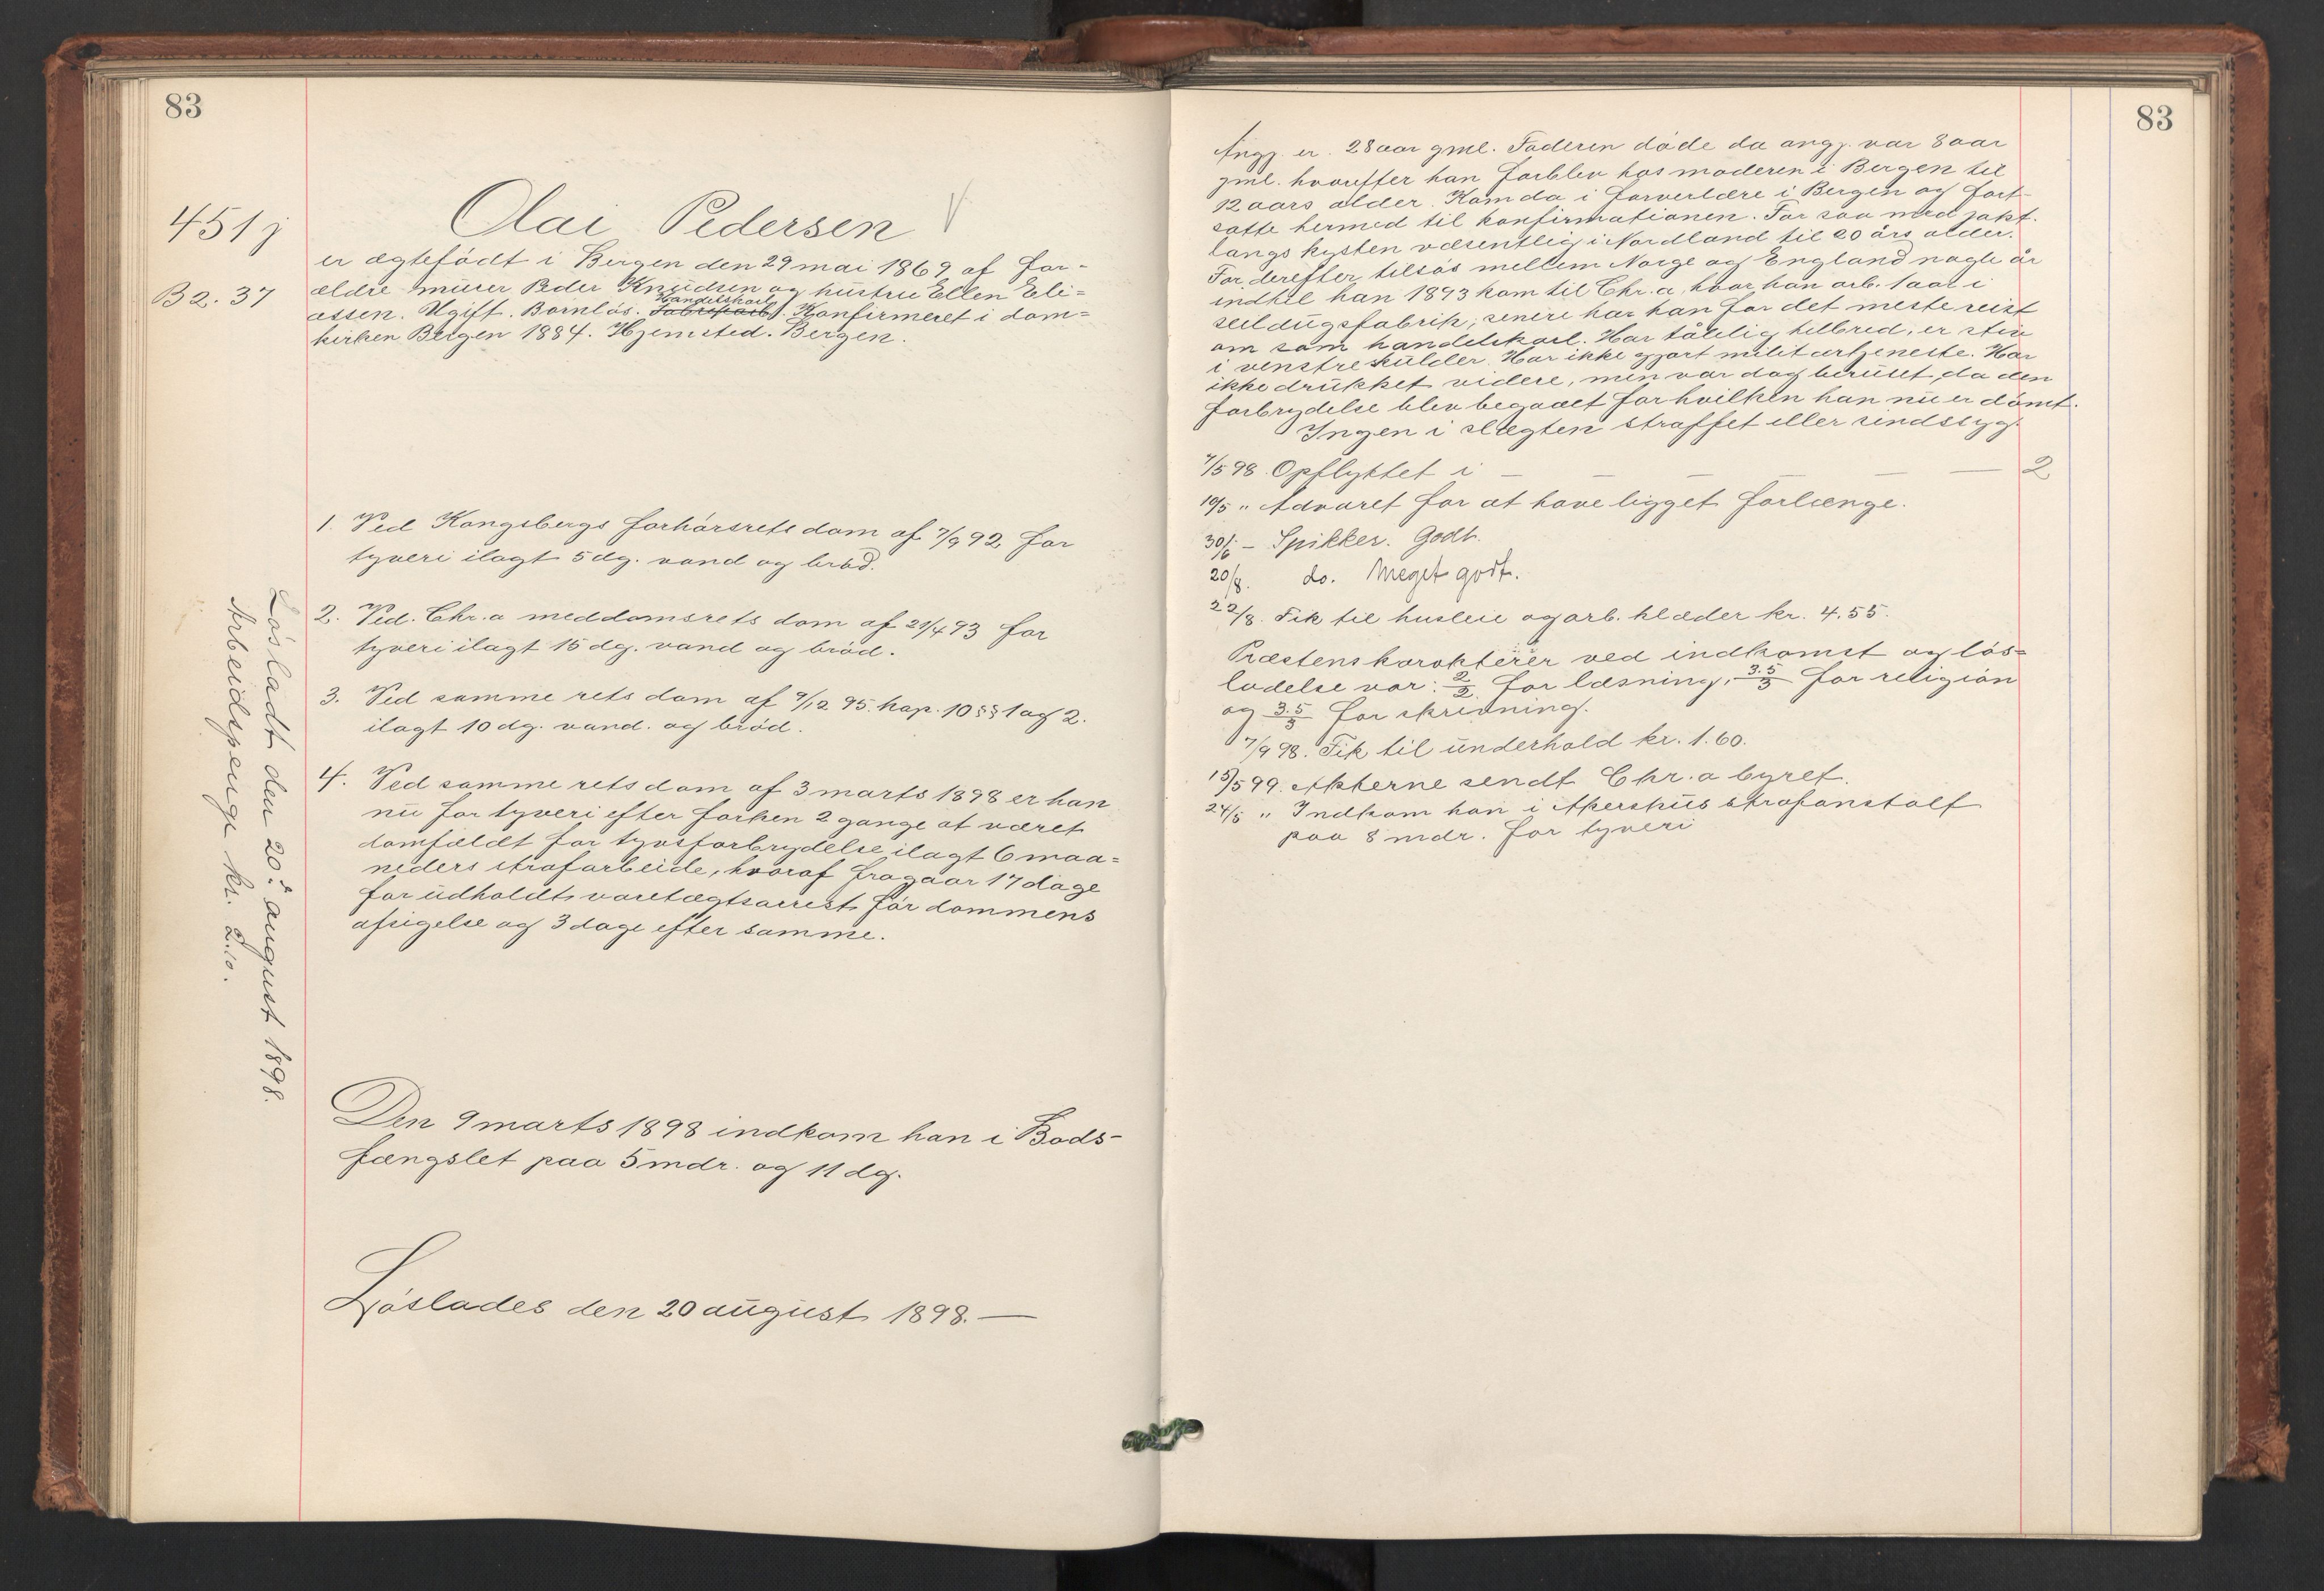 83
451 j
B 2. 37
Olai Pedersen V
er ægtefödt i Bergen den 29 mai 1869 af for-
ældre murer Peder Knudsen og hustru Ellen Eli=
assen. Ugift. Barnlös. Fabrikarb. Handelskarl. Konfirmeret i dom=
kirken Bergen 1884. Hjemsted. Bergen.
1. Ved Kongsbergs forhörsrets dom af 7/9 92 for
tyveri ilagt 5 dg. vand og bröd.
2. Ved Chr.a meddomsrets dom af 21/4 93 for
tyveri ilagt 15 dg. vand og bröd.
3. Ved samme rets dom af 9/12 95. kap. 10 §§ 1 og 2.
ilagt 10 dg. vand. og bröd.
4. Ved samme rets dom af 3 marts 1898 er han
nu for tyveri efter forhen 2 gange at været
domfældt for tyvsforbrydelse ilagt 6 maa=
neders strafarbeide, hvoraf fragaar 17 dage
for udholdt varetægtsarrest för dommens
afsigelse og 3 dage efter samme.
Den 9 marts 1898 indkom han i Bods-
fængslet paa 5 mdr. og 11 dg.
Löslades den 20 august 1898. —
Lösladt den 20.de august 1898.
Arbeidspenge kr. 2.10.
83
Angj. er 28 aar gml. Faderen döde da angj. var 8 aar
gml. hvorefter han forblev hos moderen i Bergen til
12 aars alder. Kom da i farverlære i Bergen og fort-
satte hermed til konfirmationen. For saa med jakt.
langs kysten væsentlig i Nordland til 20 års alder.
For derefter tilsös mellem Norge og England nogle år
indtil han 1893 kom til Chr.a, hvor han arb. 1 aar i
seildugsfabrik; senere har han for det meste reist
om som handelskarl. Har tålelig helbred, er stiv
i venstre skulder. Har ikke gjort militærtjeneste. Har
ikke drukket videre, men var dog beruset, da den
forbrydelse blev begaaet for hvilken han nu er dömt.
Ingen i slægten straffet eller sindssyg.
7/5 98. Opflyttet i — — — — — 2
10/5 " Advaret for at have ligget forlænge.
30/6 – Spikker. Godt.
20/8. do. Meget godt.
22/8. Fik til husleie og arb. klæder kr. 4.55.
Præstens karakterer ved indkomst og lös=
ladelse var: 2/2 for læsning, 3.5/3 for religion
og 3.5/3 for skrivning.
7/9 98. Fik til underhold kr. 1.60.
15/5 99. Akterne sendt Chr.a byret.
24/5 " Indkom han i Akershus strafanstalt
paa 8 mdr. for tyveri